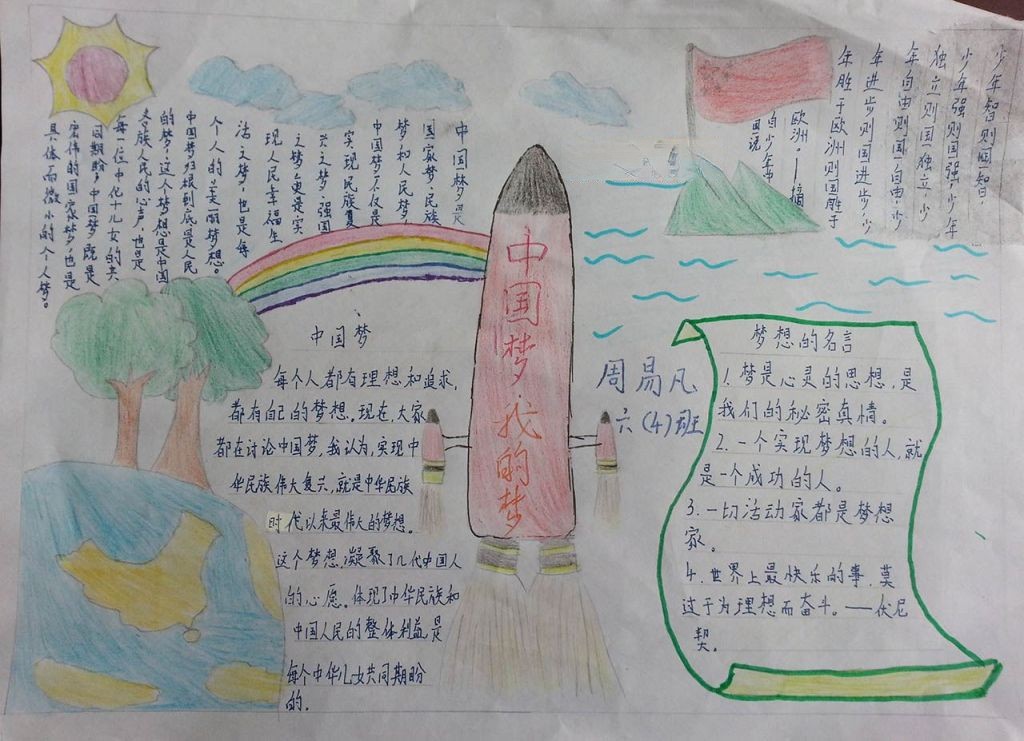 中国梦是
国家梦、民族
梦和人民梦，
中国梦不仅是
实现民族复
兴之梦，强国
之梦，更是实
现人民幸福生
活之梦，也是每
个人的美丽梦想。
中国梦归根到底是人民
的梦，这个梦想是中国
各族人民的心声，也是
每一位中华儿女的共
同期盼，中国梦既是
宏伟的国家梦，也是
具体而微小的个人梦。
少年智则国智，
少年强则国强，少年
独立则国独立，少
年自由则国自由，少
年进步则国进步，少
年胜于欧洲则国胜于
欧洲——摘
自少年中
国说
中国梦
每个人都有理想和追求，
都有自己的梦想。现在，大家
都在讨论中国梦，我认为，实现中
华民族伟大复兴，就是中华民族
时代以来最伟大的梦想。
这个梦想，凝聚了几代中国人
的心愿。体现了中华民族和
中国人民的整体利益，是
每个中华儿女共同期盼
的。
中国梦我的梦
周易凡
六（4）班
梦想的名言
1. 梦是心灵的思想，是
我们的秘密真情。
2. 一个实现梦想的人，就
是一个成功的人。
3. 一切活动家都是梦想
家。
4. 世界上最快乐的事，莫
过于为理想而奋斗。——伏尼
契。